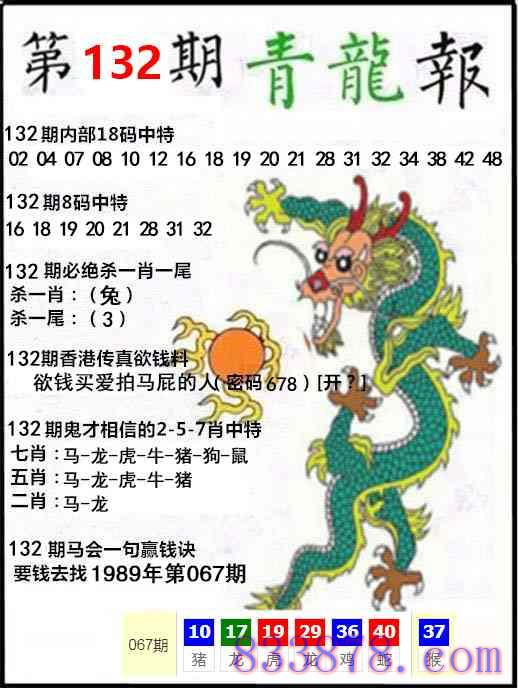 第132期青龍報
132期内部18码中特
02 04 07 08 10 12 16 18 19 20 21 28 31 32 34 38 42 48
132期8码中特
16 18 19 20 21 28 31 32
132期必绝杀一肖一尾
杀一肖：（兔）
杀一尾：（3）
132期香港传真欲钱料
欲钱买爱拍马屁的人(密码678)[开?]
132期鬼才相信的2-5-7肖中特
七肖：马-龙-虎-牛-猪-狗-鼠
五肖：马-龙-虎-牛-猪
二肖：马-龙
132期马会一句赢钱诀
要钱去找1989年第067期
067期 10 17 19 29 36 40 37
猪 龙 虎 龙 鸡 蛇 猴
833878.com